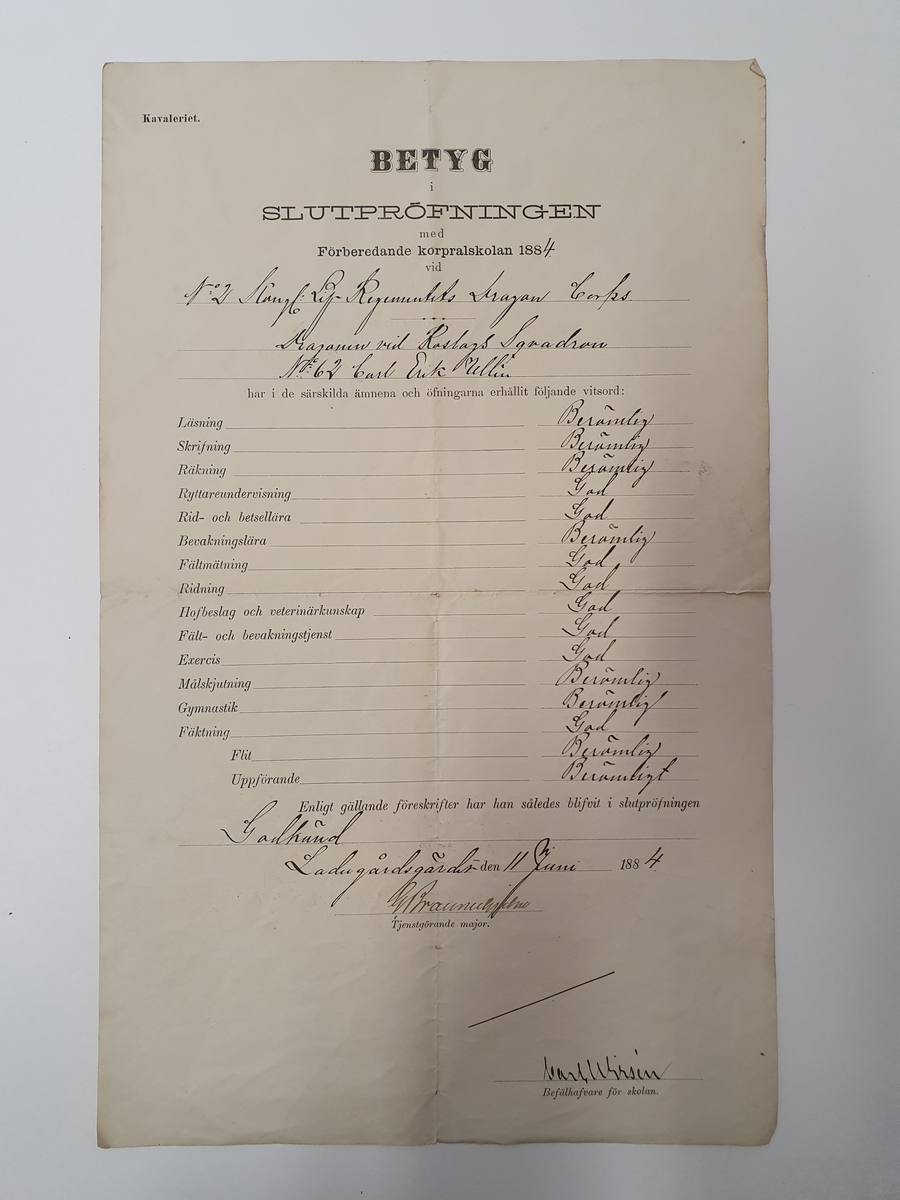 Kavaleriet.
BETYG
i
SLUTPRÖFNINGEN
med
Förberedande korpralskolan 1884
vid
No 2 Kongl: Lif-Regementets Dragon Corps
Dragonen vid Roslags Sqvadron
No 62 Carl Erik Ullin
har i de särskilda ämnena och öfningarna erhållit följande vitsord:
Läsning Berömlig
Skrifning Berömlig
Räkning Berömlig
Ryttareundervisning God
Rid- och betsellära God
Bevakningslära Berömlig
Fältmätning God
Ridning God
Hofbeslag och veterinärkunskap God
Fält- och bevakningstjenst God
Exercis God
Målskjutning Berömlig
Gymnastik Berömlig
Fäktning God
Flit Berömlig
Uppförande Berömligt
Enligt gällande föreskrifter har han således blifvit i slutpröfningen
Godkänd
Ladugårdsgärdet den 11 Juni 1884.
G Braunerhjelm
Tjenstgörande major.
Carl Wirsén
Befälhafvare för skolan.